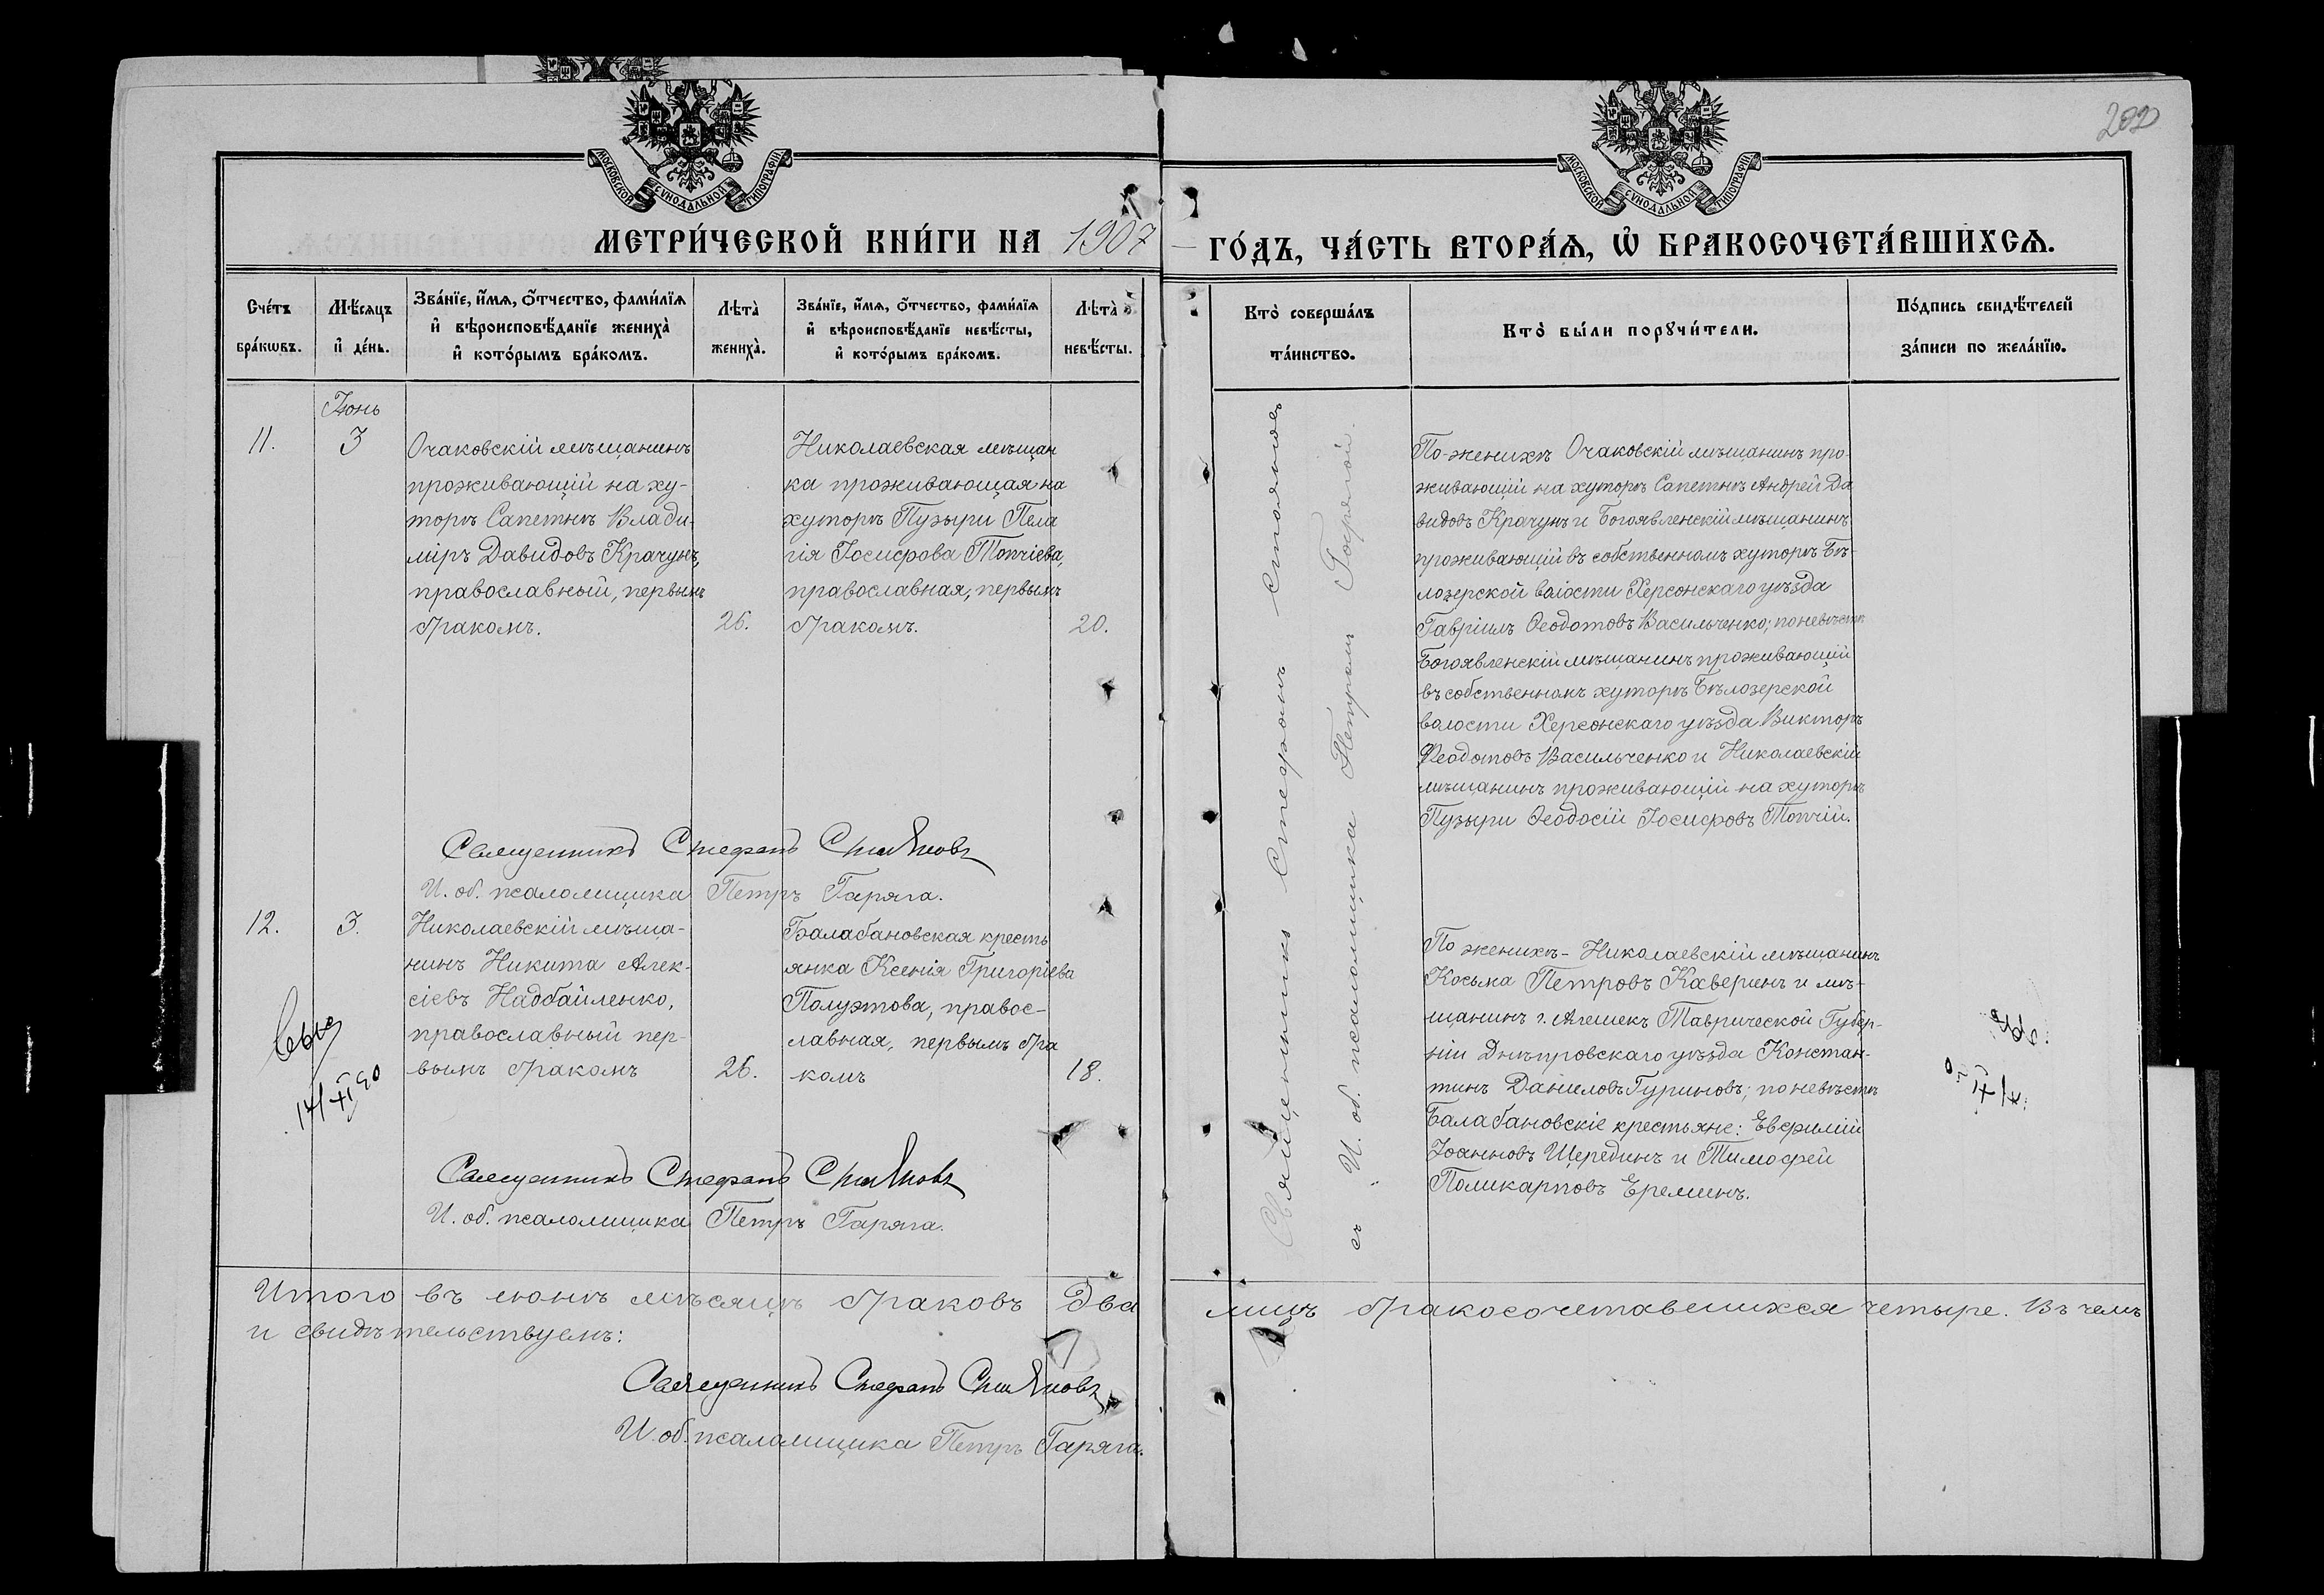 202
МОСКОВСКОЙ СѴНОДАЛЬНОЙ ТИПОГРАФІИ
МОСКОВСКОЙ СѴНОДАЛЬНОЙ ТИПОГРАФІИ
МЕТРИ́ЧЕСКОЙ КНИ́ГИ НА 1907
ГО́ДЪ, ЧА́СТЬ ВТОРА́Ѧ, Ѡ҆ БРАКОСОЧЕТА́ВШИХСѦ.
Сче́тъ
бра́кѡвъ.
Мѣ́сѧцъ
и҆ де́нь.
Зва́нїе, и҆́мѧ, ѻ҆́тчество, фами́лїѧ
и҆ вѣроисповѣ́данїе жениха̀
и҆ кото́рымъ бра́комъ.
Лѣта̀
жениха̀.
Зва́нїе, и҆́мѧ, ѻ҆́тчество, фами́лїѧ
и҆ вѣроисповѣ́данїе невѣ́сты,
и҆ кото́рымъ бра́комъ.
Лѣта̀
невѣ́сты.
Кто̀ соверша́лъ
та́инство.
Кто̀ бы́ли порꙋчи́тели.
По́дпись свидѣ́телей
за́писи по жела́нїю.
Іюнь
11.
3
Очаковскій мѣщанинъ
проживающій на ху-
торѣ Сапетнѣ Влади-
міръ Давидовъ Крачунъ,
православный, первымъ
бракомъ.
26.
Николаевская мѣщан
ка проживающая на
хуторѣ Пузыри Пела
гія Іосифова Топчіева,
православная, первымъ
бракомъ.
20.
Священникъ Стефанъ Стояновъ
съ И. об. псаломщика Петромъ Гарягой.
По женихѣ Очаковскій мѣщанинъ про-
живающій на хуторѣ Сапетнѣ Андрей Да
видовъ Крачунъ и Богоявленскій мѣщанинъ
проживающій въ собственномъ хуторѣ Бѣ-
лозерской волости Херсонскаго уѣзда
Гавріилъ Ѳеодотовъ Васильченко; по невѣстѣ
Богоявленскій мѣщанинъ проживающій
въ собственномъ хуторѣ Бѣлозерской
волости Херсонскаго уѣзда Викторъ
Ѳеодотовъ Васильченко и Николаевскій
мѣщанинъ проживающій на хуторѣ
Пузыри Ѳеодосій Іосифовъ Топчій.
Священникъ Стефанъ Стояновъ
И. об. псаломщика Петръ Гаряга.
12.
3.
Николаевскій мѣща-
нинъ Никита Алек-
сіевъ Надобайленко,
православный пер-
вымъ бракомъ
26.
Балабановская кресть
янка Ксенія Григоріева
Полуэтова, правос-
лавная, первымъ бра
комъ
18.
По женихѣ - Николаевскій мѣщанинъ
Косьма Петровъ Каверинъ и мѣ-
щанинъ г. Алешекъ Таврической Губер-
ніи Днѣпровскаго уѣзда Констан-
тинъ Даніиловъ Гуриновъ; по невѣстѣ
Балабановскіе крестьяне: Евфимій
Іоанновъ Щерединъ и Тимофей
Поликарповъ Ереминъ.
Священникъ Стефанъ Стояновъ
И. об. псаломщика Петръ Гаряга.
Итого въ іюнѣ мѣсяцѣ браковъ Два лицъ бракосочетавшихся четыре. Въ чемъ
и свидѣтельствуемъ:
Священникъ Стефанъ Стояновъ
И. об. псаломщика Петръ Гаряга.